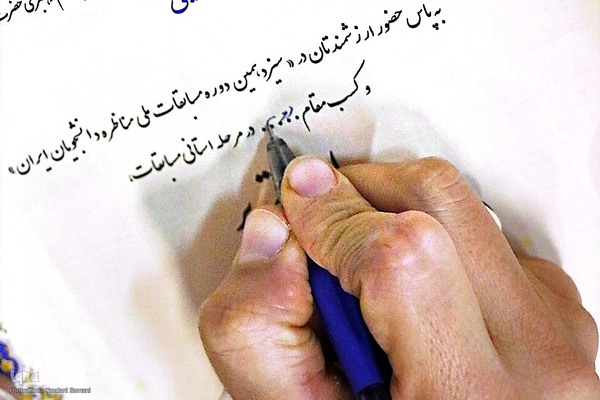 به پاس حضور ارزشمندتان در «سیزدهمین دوره مسابقات ملی مناظره دانشجویان ایران»
و کسب مقام ... در مرحله استانی مسابقات،